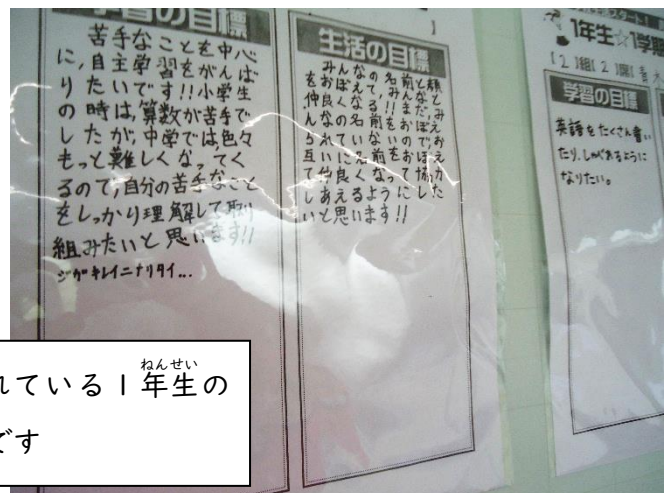 学習の目標
苦手なことを中心
に,自主学習をがんば
りたいです!!小学生
の時は,算数が苦手で
したが,中学では,色々
もっと難しくなってく
るので,自分の苦手なこと
をしっかり理解して取り
組みたいと思います!!
ジガキレイニナリタイ...
生活の目標
みんなの名前と顔
をおぼえて,みんなと
仲良くなる!!まだ,み
んなの名前をおぼえ
られていないので,お
互いに名前をおぼえ
て仲良くなって協力
しあえるようにした
いと思います!!
1年生☆1学期
【2】組【2】席【
学習の目標
英語をたくさん書い
たり,しゃべれるように
なりたい。
ねんせい
れている1年生の
です